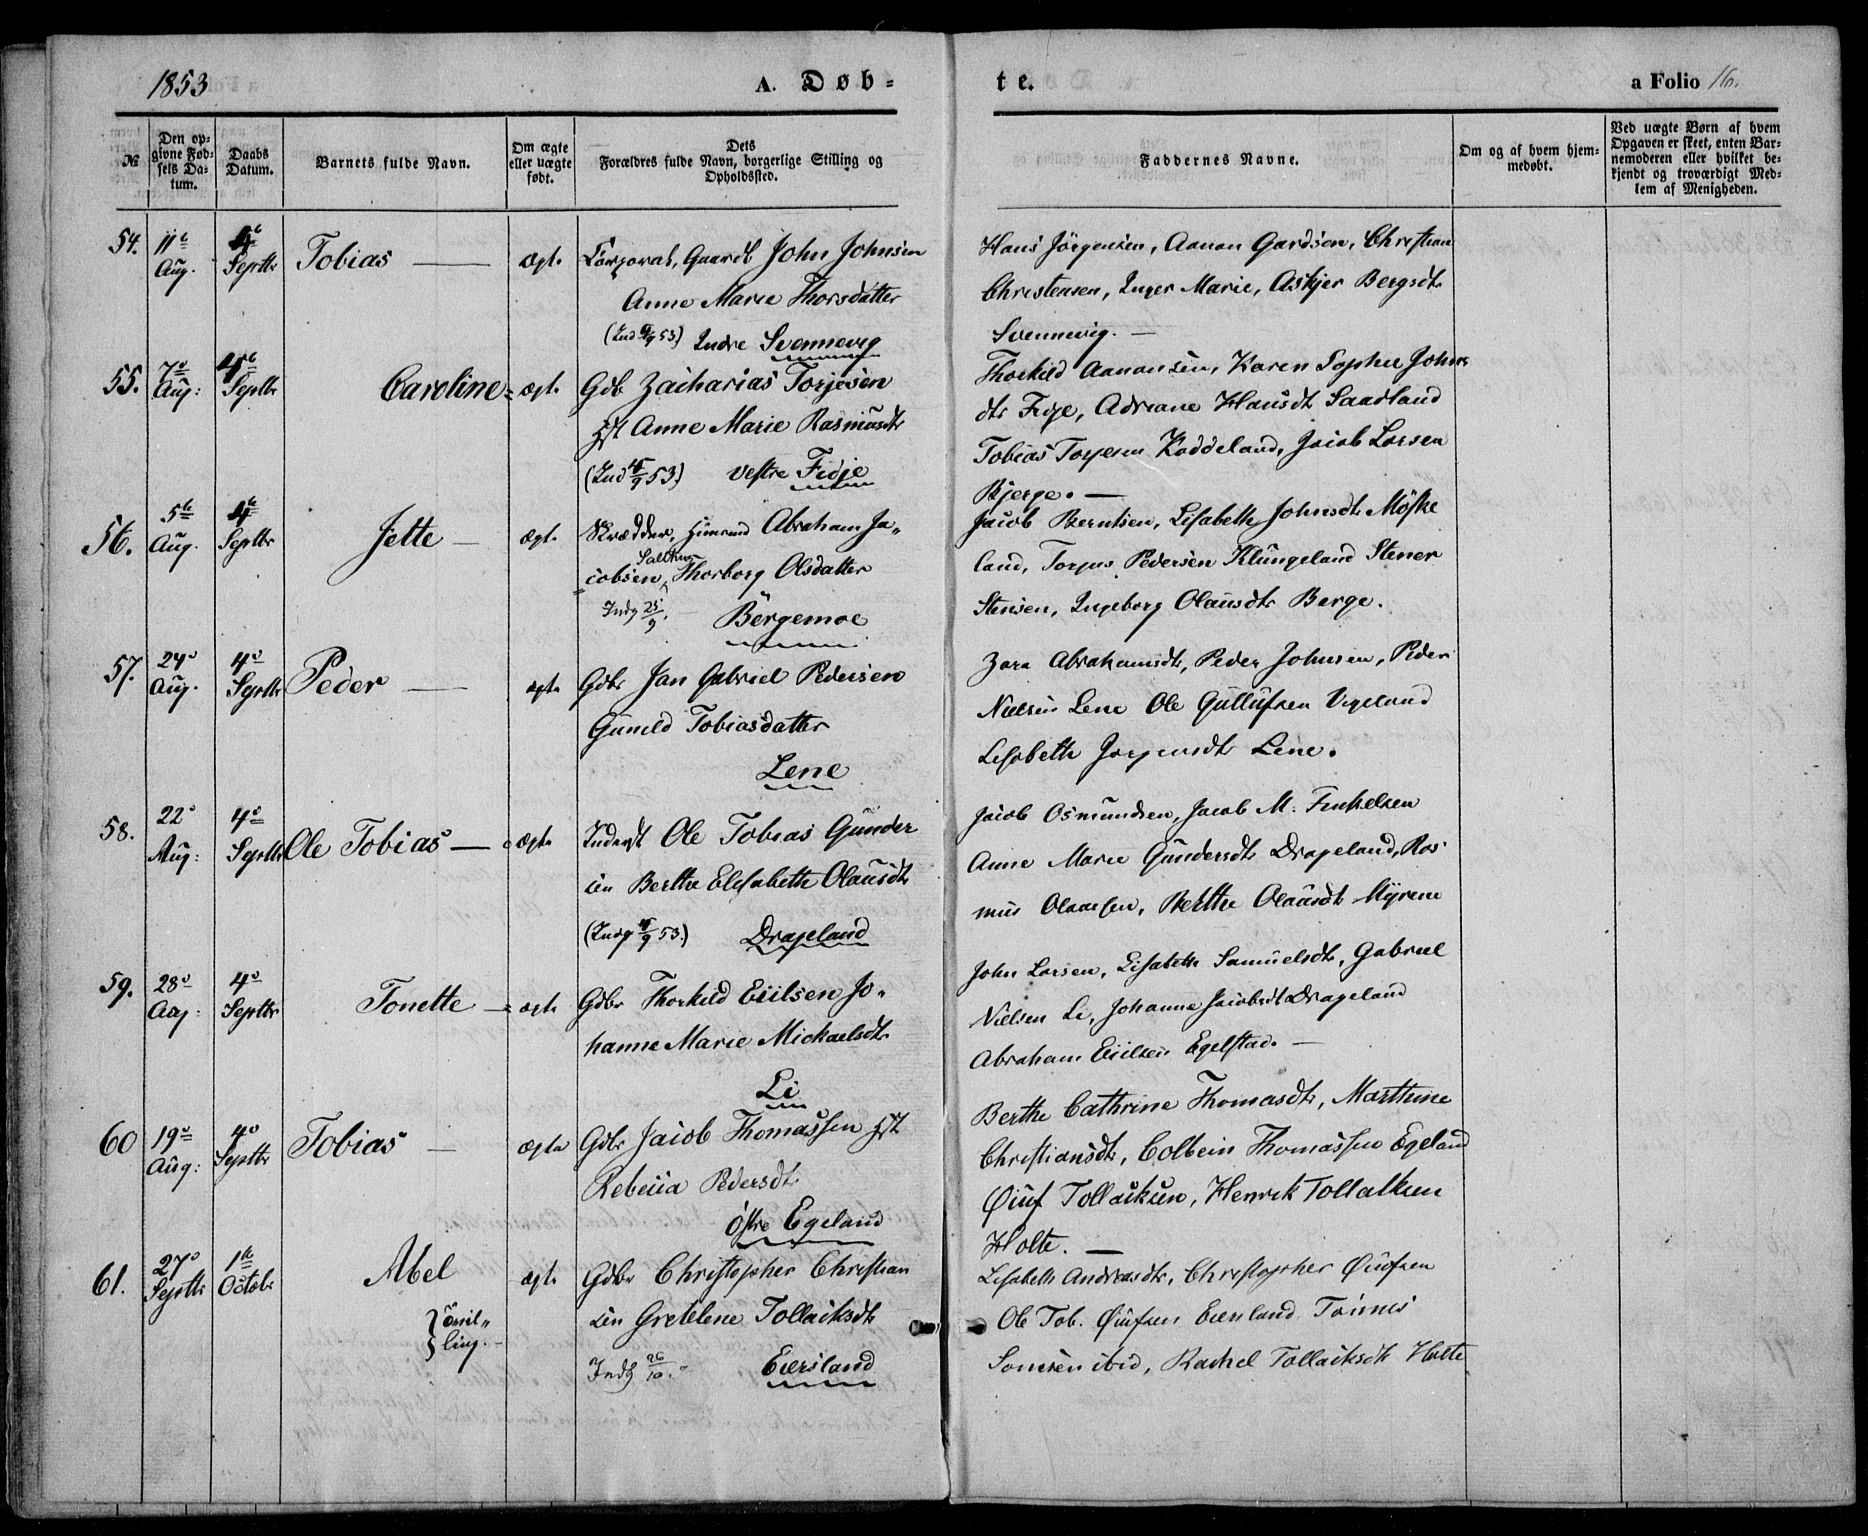 1853 A. Døb= te. a Folio 16.
№
Den op-
givne Fød-
sels Da-
tum.
Daabs
Datum.
Barnets fulde Navn.
Om ægte
eller uægte
født.
Dets
Forældres fulde Navn, borgerlige Stilling og
Opholdssted.
Faddernes Navne.
Om og af hvem hjem-
medøbt.
Ved uægte Børn af hvem
Opgaven er skeet, enten Bar-
nemoderen eller hvilket be-
kjendt og troværdigt Med-
lem af Menigheden.
54. 11te Aug. 4de Septbr Tobias — ægte Corporal, Gaardb John Johnsen
Anne Marie Thorsdatter
Indre Svennevig
Hans Jörgensen, Aanon Gardsen, Christian
Christensen, Inger Marie, Askjer Bergsdtr
Svennevig. —
55. 7de Aug: 4de Septbr Caroline = ægte Gdb Zacharias Torjesen
Hst Anne Marie Rasmusdtr
(Ind 15/9 53.) vestre Fidje
Thorkild Aanonsen, Karen Sophie Johns
dtr Fidje, Adriane Hansdtr Saadland
Tobias Torjesen Koddeland, Jacob Larsen
Bjerge. —
56. 5te Aug. 4de Septbr Jette — ægte Skrædder, Huusmd Abraham Ja„
cobsen, Thorborg Olsdatter
Indg 25/9. Börgemoe
Jacob Berntsen, Lisabeth Johnsdtr Möske
land, Torjus Pedersen Klungeland Stener
Stensen, Ingeborg Olausdtr Berge.
57. 24de Aug. 4de Septbr Peder — ægte Gdbr Jan Gabriel Pedersen
Gunild Tobiasdatter
Lene
Zara Abrahamsdtr, Peder Johnsen, Peder
Nielsen Lene Ole Gullufsen Vigeland
Lisabeth Jörgensdtr Lene.
58. 22de Aug: 4de Septbr Ole Tobias — ægte Inderst Ole Tobias Gunder
sen Berthe Elisabeth Olausdtr
(Indg 15/9 53.) Drageland
Jacob Osmundsen, Jacob M. Finkelsen
Anne Marie Gundersdtr Drageland, Ras
mus Olausen, Berthe Olausdtr Myrene
59. 28de Aug: 4de Septbr Tonette — = ægte Gdbr Thorkild Eiilsen Jo„
hanne Marie Mickaelsdtr
Li
John Larsen, Lisabeth Samuelsdtr, Gabriel
Nielsen Li, Johanne Jacobsdtr Drageland
Abraham Eiilsen Egelstad. —
60 19de Aug: 4de Septbr Tobias — ægte Gdbr Jacob Thomassen Hst
Rebecca Pedersdtr
östre Egeland
Berthe Cathrine Thomasdtr, Marthine
Christiansdtr, Colbein Thomassen Egeland
Öiuf Tollacksen, Henrik Tollaksen
Holte. —
61. 27de Septbr 1ste Octobr Abel ægte Gdbr Christopher Christian
sen Gretelene Tollacksdtr
Indg 26/10. Eiersland
Tvil„
ling. —
Lisabeth Andreasdtr, Christopher Öiufsen
Ole Tob. Öiufsen Eiersland Tönnes
Samsen ibid, Rachel Tollacksdtr Holte